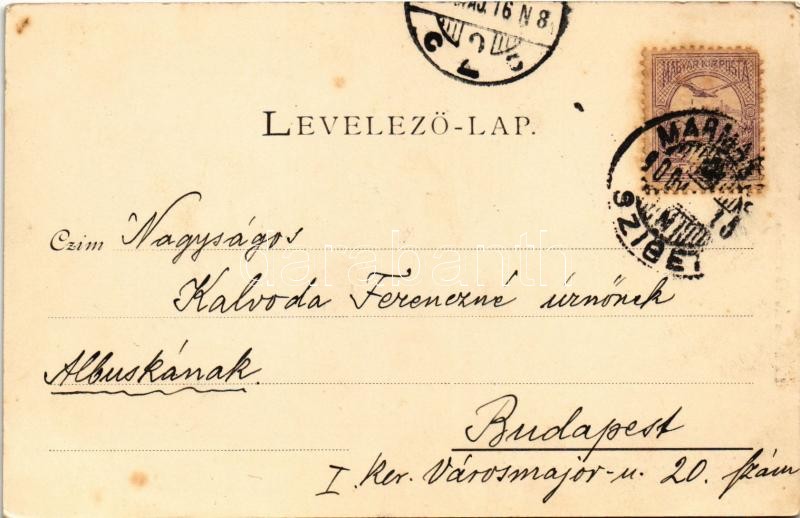 MÁJ. 16 N 8
MAGYAR KIR. POSTA
LEVELEZŐ-LAP.
SZIGET
Czim Nagyságos
darabanth
Kalvoda Ferenczné úrnőnek
Albuskának.
Budapest
I. Ker. Városmajor-u. 20. szám